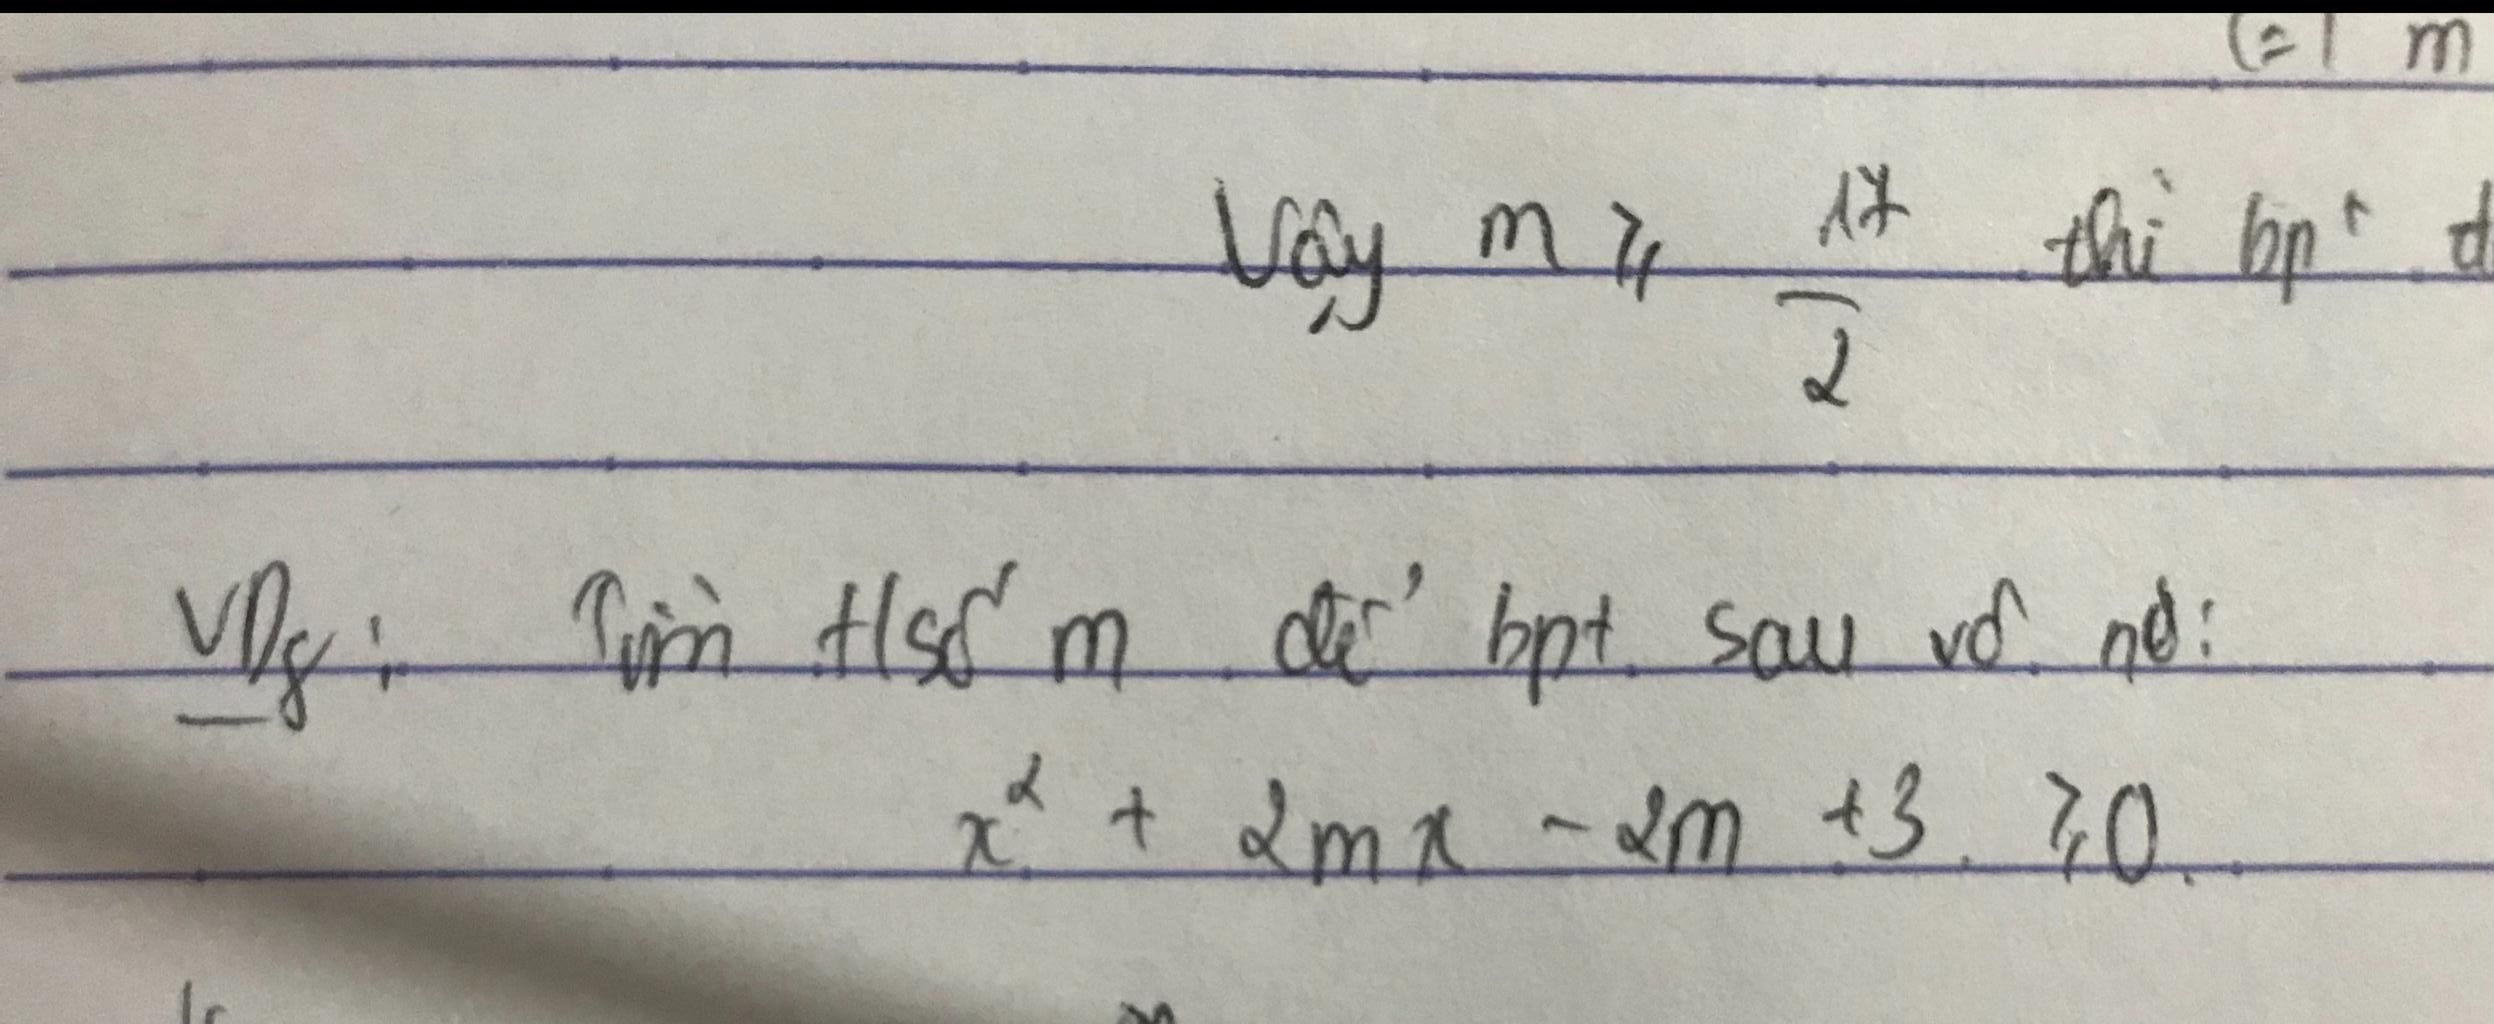 (=) m
Vậy m ≥ 17/2 thì bpt đ
VD8: Tìm t/số m để bpt sau vô n0:
x² + 2mx - 2m + 3 ≥ 0.